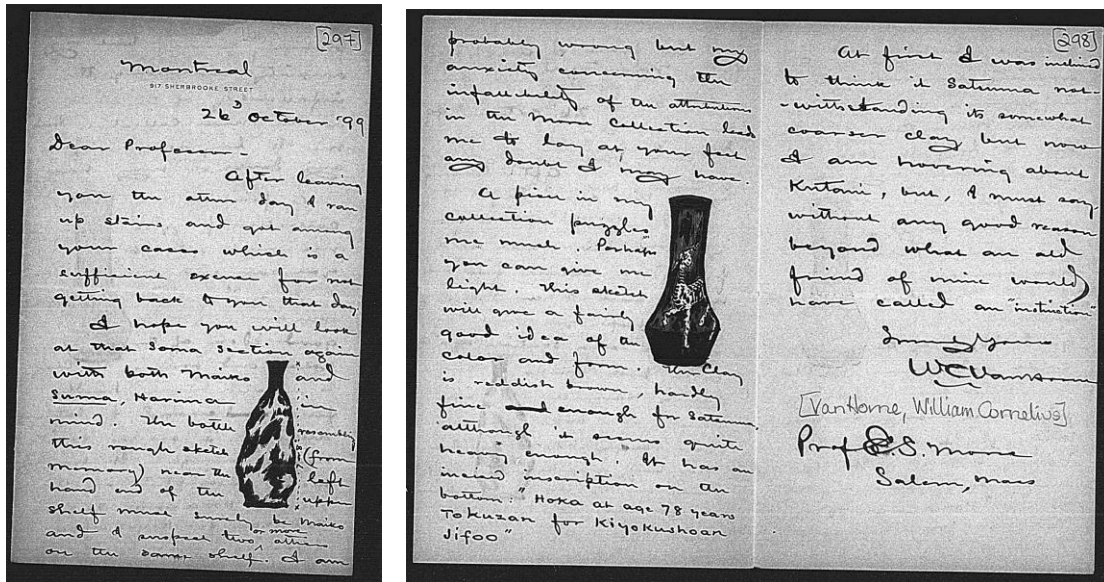 [297]
Montreal
917 SHERBROOKE STREET
26 October '99
Dear Professor -
After leaving
you the other day I ran
up stairs and got among
your cases which is a
sufficient excuse for not
getting back to you that day.
I hope you will look
at that Soma section again
with both Maiko and
Suma, Harima in
mind. The bottle resembling
this rough sketch (from
memory) near the left
hand end of the upper
shelf must surely be Maiko
and I suspect two or more others
on the same shelf. I am
probably wrong but my
anxiety concerning the
infallibility of the attributions
in the Morse Collection leads
me to lay at your feet
any doubt I may have.
A piece in my
collection puzzles
me much. Perhaps
you can give me
light. This sketch
will give a fairly
good idea of the
color and form. The clay
is reddish brown, hardly
fine enough for Satsuma,
although it seems quite
heavy enough. It has an
incised inscription on the
bottom: "Hoka at age 78 years
Tokuzan for Kiyokushoan
Jifoo"
[298]
At first I was inclined
to think it Satsuma not-
-withstanding its somewhat
coarser clay but now
I am hovering about
Kutani, but, I must say,
without any good reason
beyond what an old
friend of mine would
have called an "instinction"
Yours
WCVanHorne
[VanHorne, William Cornelius]
Prof E.S. Morse
Salem, Mass